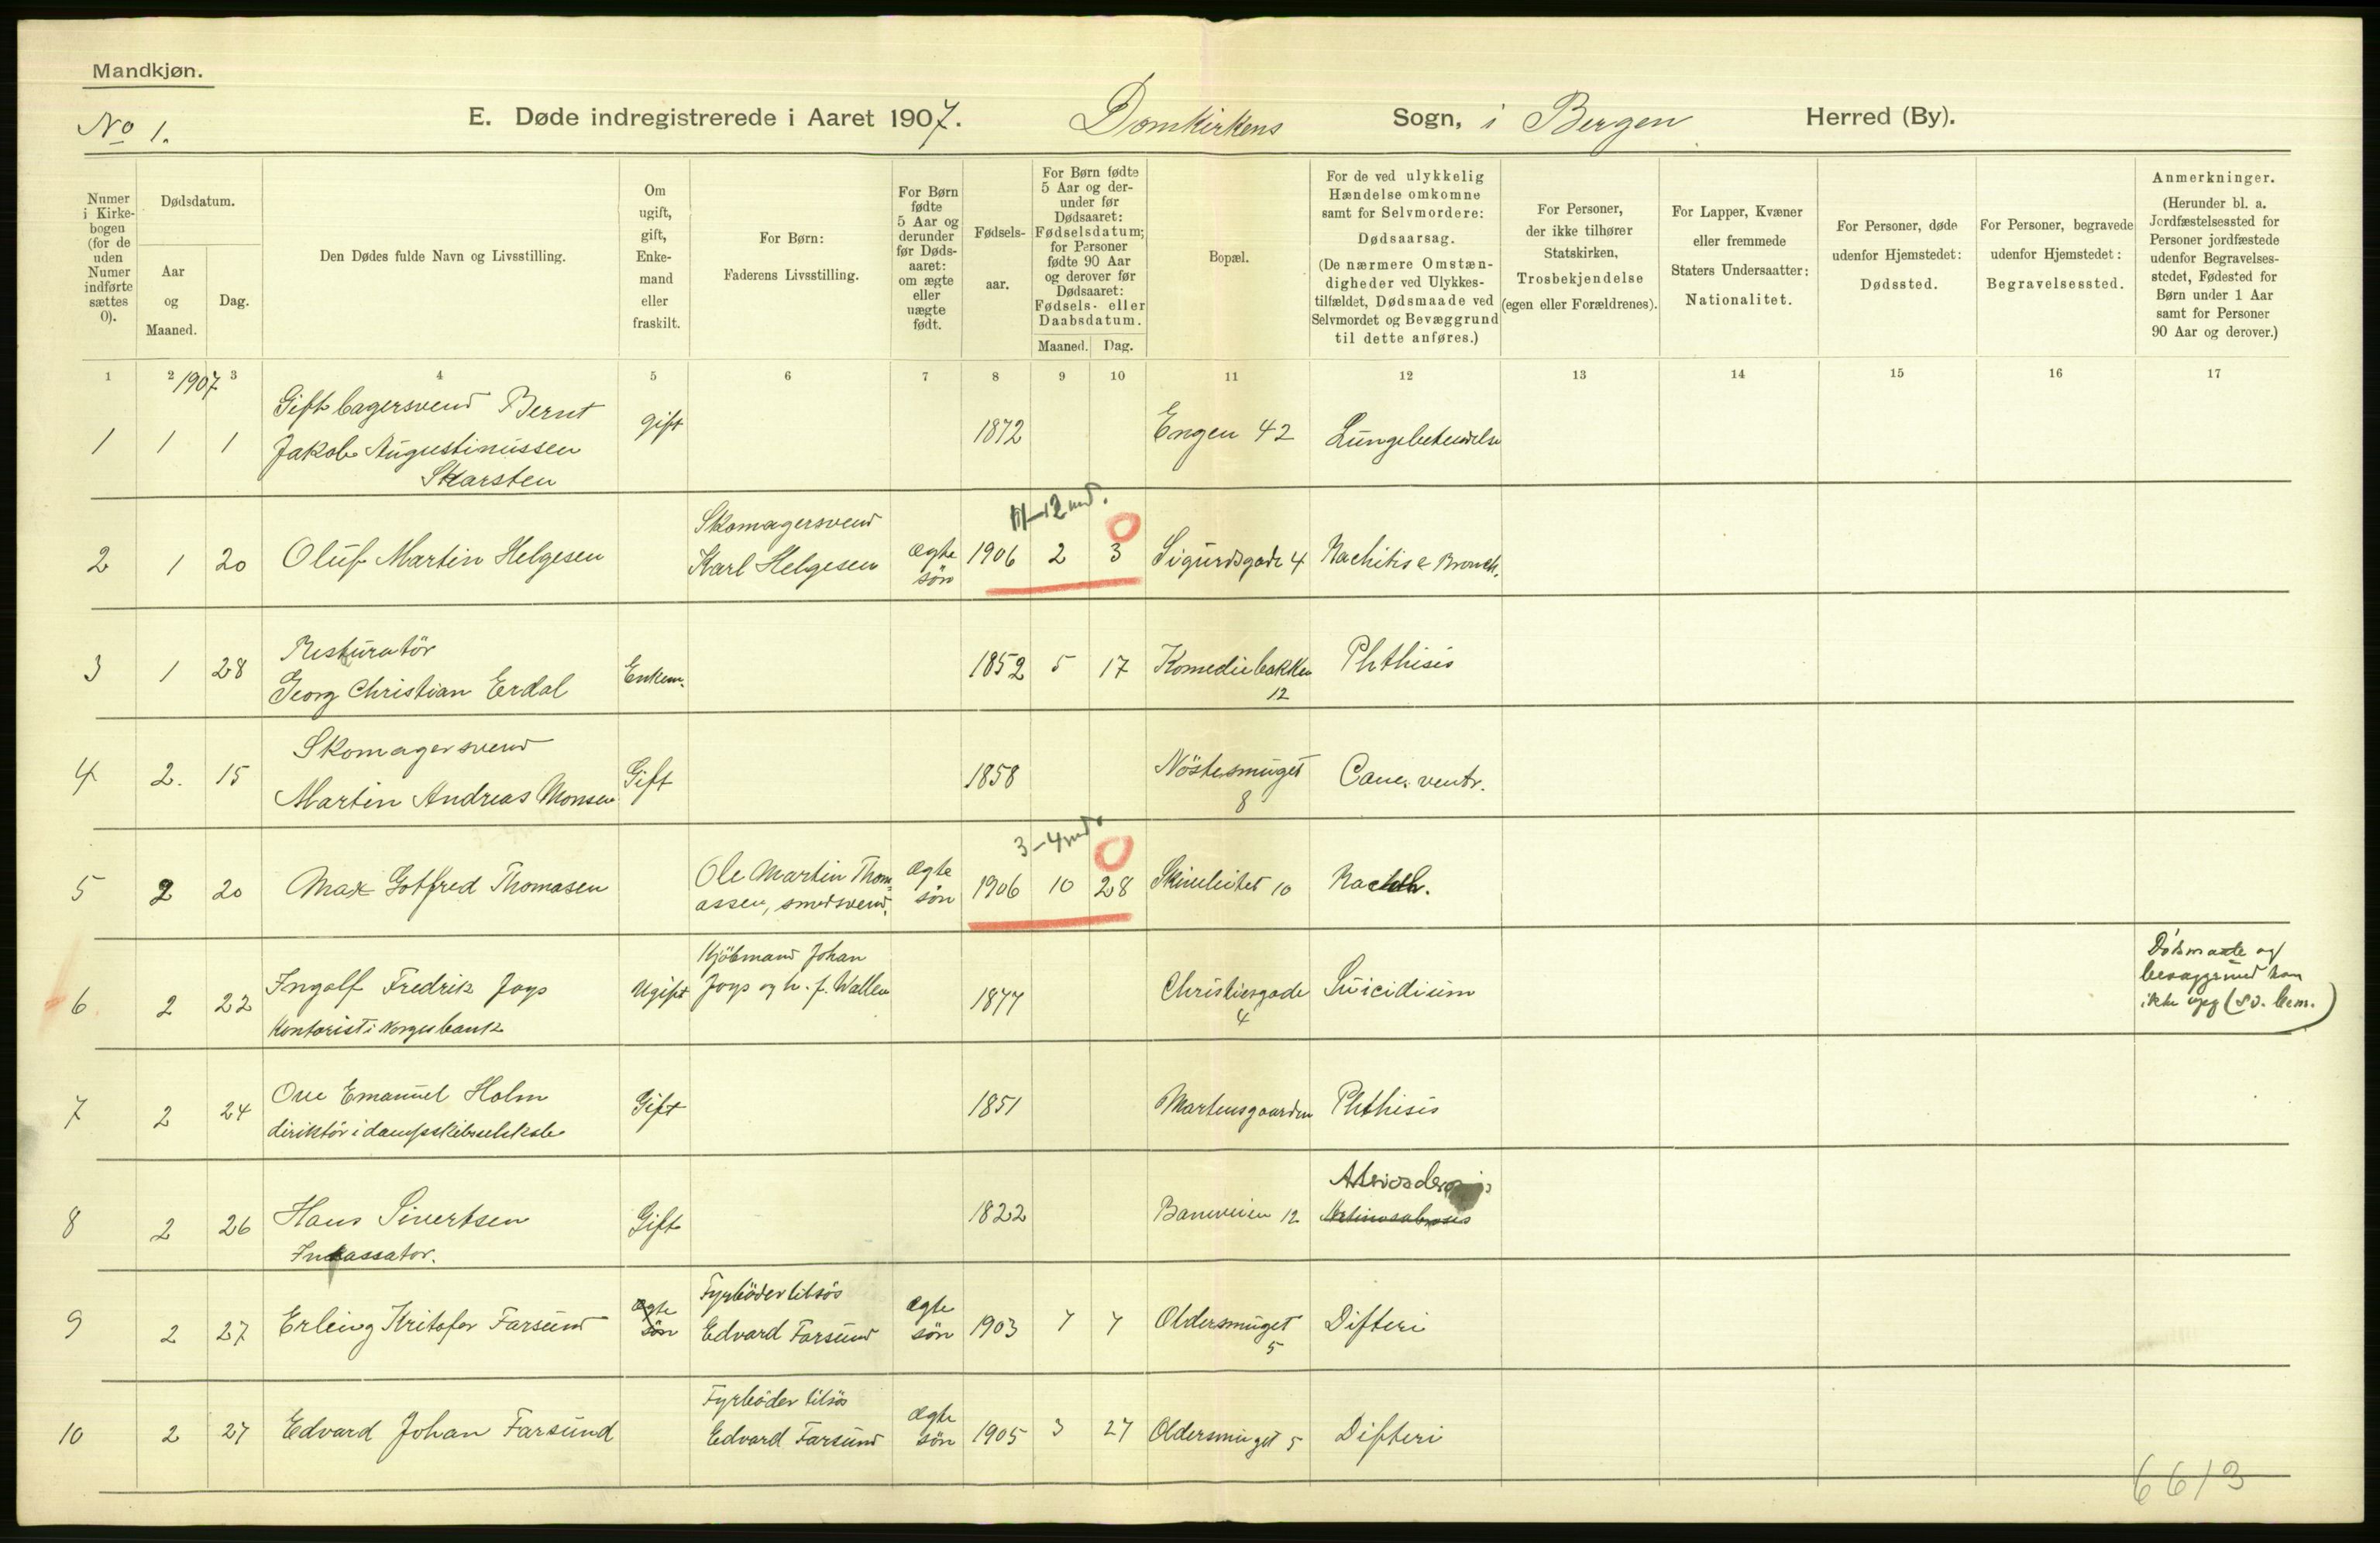 Mandkjøn.
No 1.
E. Døde indregistrerede i Aaret 1907. Domkirkens Sogn, i Bergen Herred (By).
Numer i Kirke-bogen (for de uden Numer indførte sættes 0).
Dødsdatum.
Aar og Maaned.
Dag.
Den Dødes fulde Navn og Livsstilling.
Om ugift, gift, Enke-mand eller fraskilt.
For Børn:
Faderens Livsstilling.
For Børn fødte 5 Aar og derunder før Døds-aaret: om ægte eller uægte født.
Fødsels-aar.
For Børn fødte 5 Aar og der-under før Dødsaaret: Fødselsdatum; for Personer fødte 90 Aar og derover før Dødsaaret: Fødsels- eller Daabsdatum.
Maaned. Dag.
Bopæl.
For de ved ulykkelig Hændelse omkomne samt for Selvmordere:
Dødsaarsag.
(De nærmere Omstæn-digheder ved Ulykkes-tilfældet, Dødsmaade ved Selvmordet og Bevæggrund til dette anføres.)
For Personer, der ikke tilhører Statskirken, Trosbekjendelse (egen eller Forældrenes).
For Lapper, Kvæner eller fremmede Staters Undersaatter: Nationalitet.
For Personer, døde udenfor Hjemstedet: Dødssted.
For Personer, begravede udenfor Hjemstedet: Begravelsessted.
Anmerkninger.
(Herunder bl. a. Jordfæstelsessted for Personer jordfæstede udenfor Begravelses-stedet, Fødested for Børn under 1 Aar samt for Personer 90 Aar og derover.)
1 2 3 4 5 6 7 8 9 10 11 12 13 14 15 16 17
1907
Gift bagersvend Bernt
1 1 1 Jakob Augustinussen gift 1872 Engen 42
Skarsten
11-12 md.
Skomagersvend
2 1 20 Oluf Martin Helgesen Karl Helgesen ægte søn 1906 2 3 0 Sigurdsgade 4 Rachitis & Bronch.
Resturatör
3 1 28 Georg Christian Erdal Enkem. 1852 5 17 Komediebakken 12 Phthisis
Skomagersvend
4 2. 15 Martin Andreas Monsen Gift 1858 Nöstesmuget 8 Canc. ventr.
3-4 md.
5 2 20 Max Gotfred Thomasen Ole Martin Thom-assen, smedsvend. Ægte søn 1906 10 28 0 10
Kjöbmand Johan
6 2 22 Ingolf Fredrik Joys Ugift Joys og h. f. Wallem 1877 Christiesgade 4 Suicidium
Kontorist i Norges bank
Dödsmaade og
ikke
7 2 24 Ove Emanuel Holm Gift 1851 Martensgaarden Phthisis
direktör i dampskibsselskab
8 2 26 Hans Sivertsen Gift 1822 12
Inkassator.
Fyrböder tilsös
9 2 27 Erling Kritofer Farsund ægte søn Edvard Farsund ægte søn 1903 7 7 Oldersmuget 5 Difteri
Fyrböder tilsös
10 2 27 Edvard Johan Farsund Edvard Farsund ægte søn 1905 3 27 Oldersmuget 5 Difteri
6613